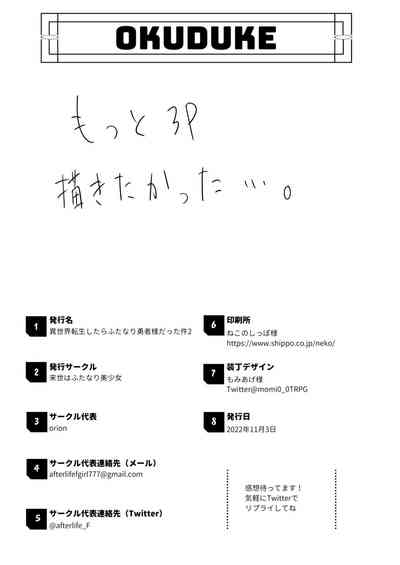 OKUDUKE
もっと 3P
描きたかった…。
1 発行名
異世界転生したらふたなり勇者様だった件2
2 発行サークル
来世はふたなり美少女
3 サークル代表
orion
4 サークル代表連絡先（メール）
afterlifefgirl777@gmail.com
5 サークル代表連絡先（Twitter）
@afterlife_F
6 印刷所
ねこのしっぽ様
https://www.shippo.co.jp/neko/
7 装丁デザイン
もみあげ様
Twitter@momi0_0TRPG
8 発行日
2022年11月3日
感想待ってます！
気軽にTwitterで
リプライしてね